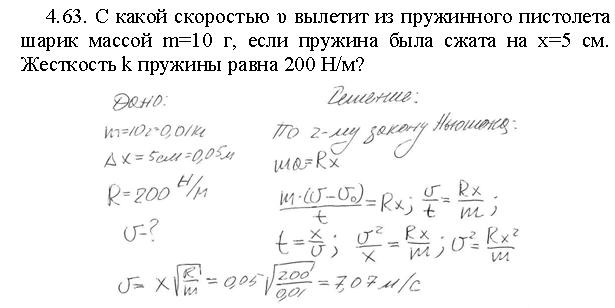 4.63. С какой скоростью υ вылетит из пружинного пистолета
шарик массой m=10 г, если пружина была сжата на x=5 см.
Жесткость k пружины равна 200 Н/м?
Дано:
m=10г=0,01кг
Δx=5см=0,05м
R=200 Н/м
υ-?
Решение:
По 2-му закону Ньютона:
ma=Rx
m·(υ-υ₀)/t=Rx; υ/t=Rx/m;
t=x/υ; υ²/x=Rx/m; υ²=Rx²/m
υ= x√(R/m) = 0,05√(200/0,01) = 7,07 м/с